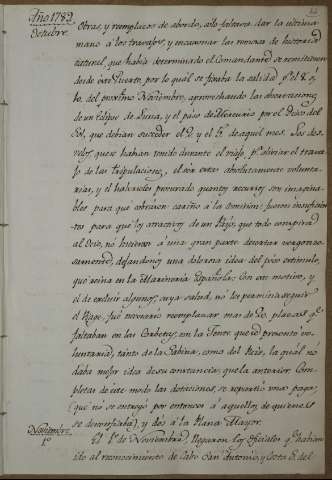 Año 1789
Octubre.
Obras, y remplazos de abordo, solo faltaba dar la ultima
mano à los trabajos, y encaxonar las remesas de historia
natural, que habia determinado el Comandante se remitiesen
desde este Puerto, por lo qual se fixaba la salida p.ª el 8, ò
10, del proximo Noviembre, aprovechando las observaciones
de un eclipse de Luna, y el paso de Mercurio por el disco del
Sol, que debian suceder el 2, y el 5 de aquel mes. Los des-
velos, que se habian tenido durante el viaje, p.ª aliviar el traba-
jo de las tripulaciones, el ser estas absolutamente volunta-
rias, y el haberles procurado quantos recursos son imagina-
bles para que cobrasen cariño à la Comision; fueron insuficien-
tes para que los atractivos de un Pays, que todo conspira
al Ocio, no hiciesen à una gran parte desertar vergonzo-
samente, dexandonos una dolorosa idea del poco estimulo,
que reina en la Marineria Española: Con este motivo, y
el de excluir algunos, cuya salud, no les permitia seguir
el Viage, fué necesario remplazar mas de 20 plazas, q.e
faltaban en las Corbetas; con la Gente que se presentó vo-
luntaria, tanto de la Cabina, como del Pais, la qual no
daba mejor idea de su constancia, que la anterior. Com-
pletas de este modo las dotaciones, se repartió una paga,
(que no se entregó por entonces à aquellos, de quienes
se desconfiaba), y dos à la Plana Mayor.
Noviembre
1º
El 1º de Noviembre, llegaron los Oficiales q.e habian
ido al reconocimiento de Cabo San Antonio, y Costa S. del